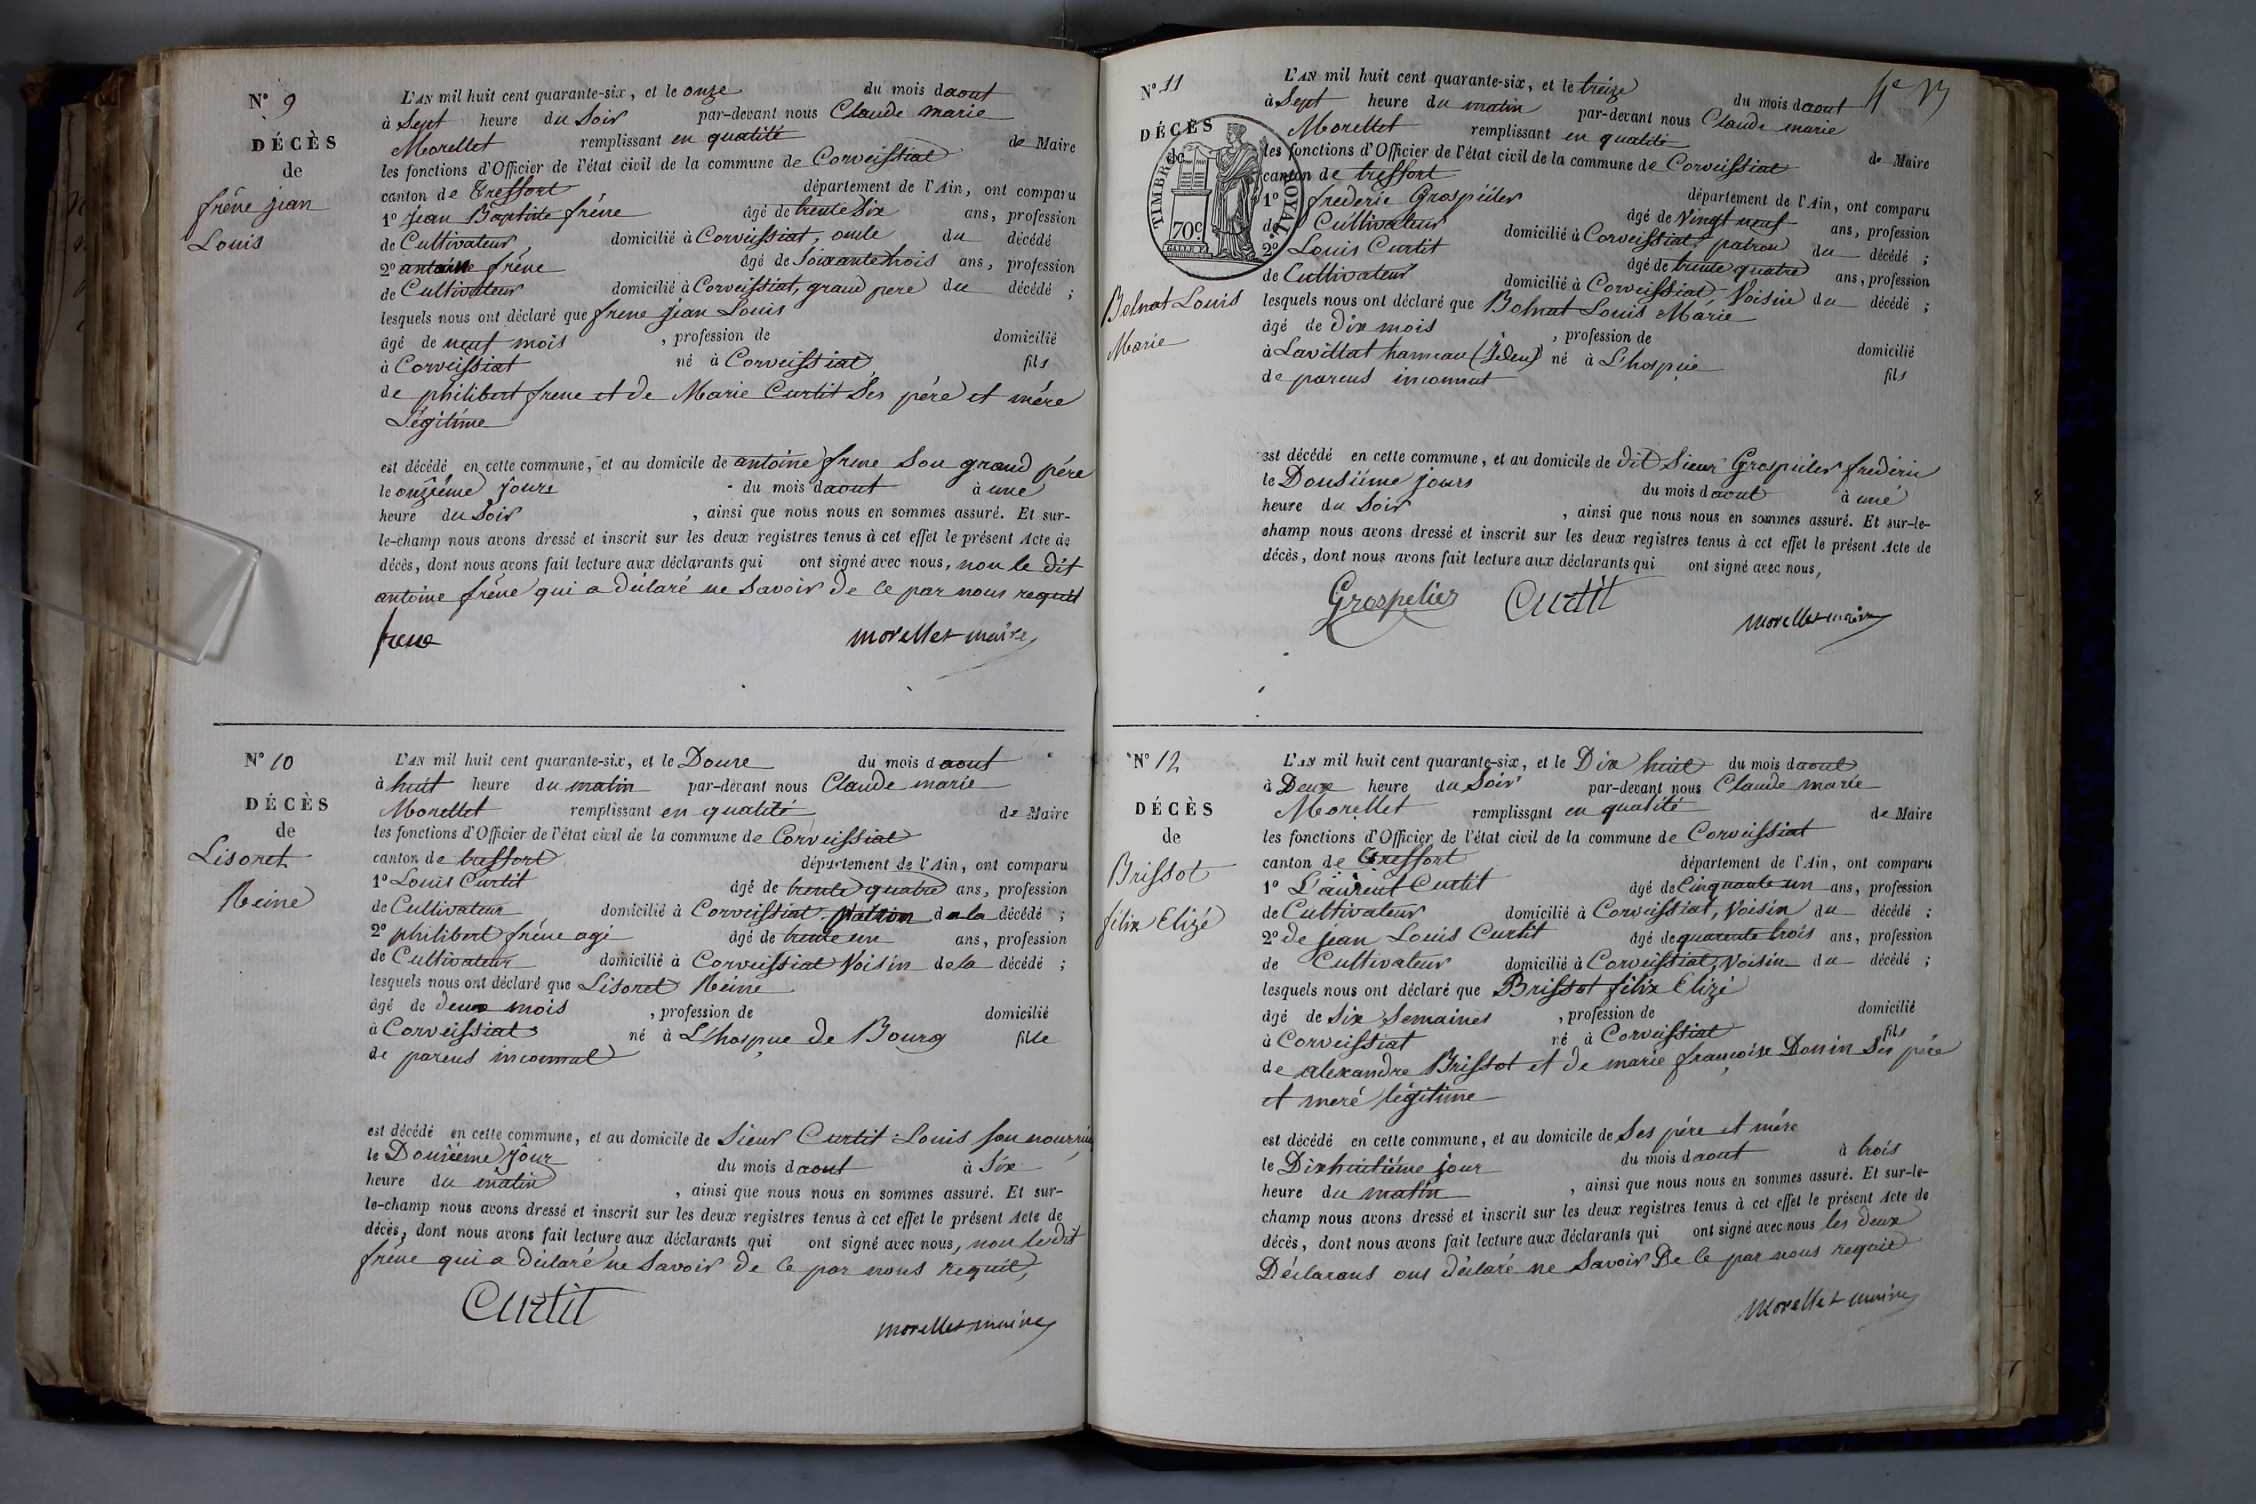 N° 9
DÉCÈS
de
frêne jean
Louis
L'AN mil huit cent quarante-six, et le onze du mois d aout
à Sept heure du Soir par-devant nous Claude marie
Morellet remplissant en qualité de Maire
les fonctions d'Officier de l'état civil de la commune de Corveissiat
canton de Treffort département de l'Ain, ont comparu
1° Jean Baptiste frêne âgé de trente Six ans, profession
de Cultivateur, domicilié à Corveissiat, oncle du décédé
2° antoine frêne âgé de Soixante trois ans, profession
de Cultivateur domicilié à Corveissiat, grand pere du décédé ;
lesquels nous ont déclaré que frene jean Louis
âgé de neuf mois , profession de domicilié
à Corveissiat né à Corveissiat fils
de philibert frene et de Marie Curtit Ses pére et mére
Légitime
est décédé en cette commune, et au domicile de antoine frene Son grand pére
le onzième jours du mois d aout à une
heure du Soir , ainsi que nous nous en sommes assuré. Et sur-
le-champ nous avons dressé et inscrit sur les deux registres tenus à cet effet le présent Acte de
décès, dont nous avons fait lecture aux déclarants qui ont signé avec nous, non le dit
antoine frêne qui a déclaré ne Savoir de ce par nous requit
frene morellet maire
N° 10
DÉCÈS
de
Lisoret
Reine
L'AN mil huit cent quarante-six, et le Douze du mois d aout
à huit heure du matin par-devant nous Claude marie
Morellet remplissant en qualité de Maire
les fonctions d'Officier de l'état civil de la commune de Corveissiat
canton de treffort département de l'Ain, ont comparu
1° Louis Curtit âgé de trente quatre ans, profession
de Cultivateur domicilié à Corveissiat, patron de la décédé ;
2° philibert frêne agé âgé de trente un ans, profession
de Cultivateur domicilié à Corveissiat Voisin de la décédé ;
lesquels nous ont déclaré que Lisoret Reine
âgé de deux mois , profession de domicilié
à Corveissiat né à L'hospice de Bourg fille
de parens inconnat
est décédé en cette commune, et au domicile de Sieur Curtit Louis Son
le Douzième jour du mois d aout à Six
heure du matin , ainsi que nous nous en sommes assuré. Et sur-
le-champ nous avons dressé et inscrit sur les deux registres tenus à cet effet le présent Acte de
décès, dont nous avons fait lecture aux déclarants qui ont signé avec nous, non le dit
frêne qui a déclaré ne Savoir de ce par nous requit,
Curtit morellet maire
N° 11
DÉCÈS
de
TIMBRE ROYAL
70c
Bolnat Louis
Marie
L'AN mil huit cent quarante-six, et le treize du mois d aout
à Sept heure du matin par-devant nous Claude marie
Morellet remplissant en qualité de Maire
les fonctions d'Officier de l'état civil de la commune de Corveissiat
canton de treffort département de l'Ain, ont comparu
1° frederic Grospelier âgé de Vingt neuf ans, profession
de Cultivateur domicilié à Corveissiat, patron du décédé ;
2° Louis Curtit âgé de trente quatre ans, profession
de Cultivateur domicilié à Corveissiat Voisin du décédé ;
lesquels nous ont déclaré que Bolnat Louis Marie
âgé de dix mois , profession de domicilié
à Lavillat hameau né à L'hospice fils
de parens inconnut
est décédé en cette commune, et au domicile de dit Sieur Grospelier frederic
le Dousiéme jours du mois d aout à une
heure du Soir , ainsi que nous nous en sommes assuré. Et sur-le-
champ nous avons dressé et inscrit sur les deux registres tenus à cet effet le présent Acte de
décès, dont nous avons fait lecture aux déclarants qui ont signé avec nous,
Grospelier Curtit morellet maire
N° 12
DÉCÈS
de
Brissot
félix Elizé
L'AN mil huit cent quarante-six, et le Dix huit du mois d aout
à Deux heure du Soir par-devant nous Claude marie
Morellet remplissant en qualité de Maire
les fonctions d'Officier de l'état civil de la commune de Corveissiat
canton de Treffort département de l'Ain, ont comparu
1° Laurent Curtit âgé de Cinquante un ans, profession
de Cultivateur domicilié à Corveissiat, Voisin du décédé ;
2° de jean Louis Curtit âgé de quarente trois ans, profession
de Cultivateur domicilié à Corveissiat, Voisin du décédé ;
lesquels nous ont déclaré que Brissot félix Elizé
âgé de Six Semaines , profession de domicilié
à Corveissiat né à Corveissiat fils
de alexandre Brissot et de marie françoise Donin Ses pére
et meré légitime
est décédé en cette commune, et au domicile de Ses pére et mére
le Dixhuitiéme jour du mois d aout à trois
heure du matin , ainsi que nous nous en sommes assuré. Et sur-le-
champ nous avons dressé et inscrit sur les deux registres tenus à cet effet le présent Acte de
décès, dont nous avons fait lecture aux déclarants qui ont signé avec nous les deux
Déclarans ons déclaré ne Savoir De ce par nous requit
morellet maire